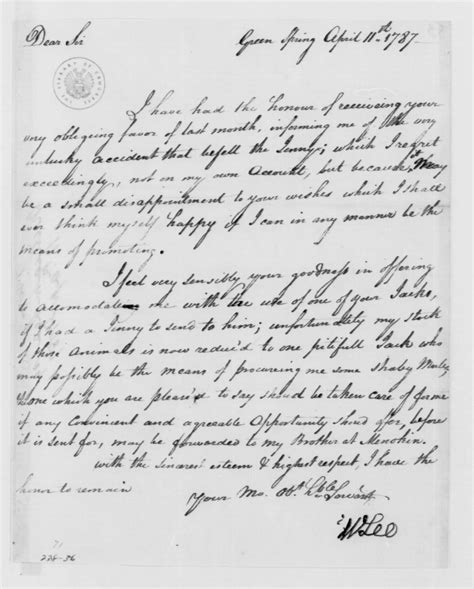 Dear Sir
Green Spring April 11th 1787.
I have had the honour of receiveing your
very obligeing favor of last month, informing me of the very
unlucky accident that befell the Jenny; which I regret
exceedingly, not on my own Account, but because it may
be a small disappointment to your wishes which I shall
ever think myself happy if I can in any manner be the
means of promoting.
I feel very sensibly your goodness in offering
to accomodate me with the use of one of your Jacks,
if I had a Jenny to send to him; unfortunately my stock
of those Animals is now reduc'd to one pitifull Jack who
may possibly be the means of procureing me some shaby Mules,
one which you are pleas'd to say should be taken care of for me
if any Convinient and agreable Opportunity shoud ofer, before
it is sent for, may be forwarded to my Brother at Menokin.
with the sincerest esteem & highest respect, I have the
honor to remain
Your Mo. Obt. Hble Servant
W Lee